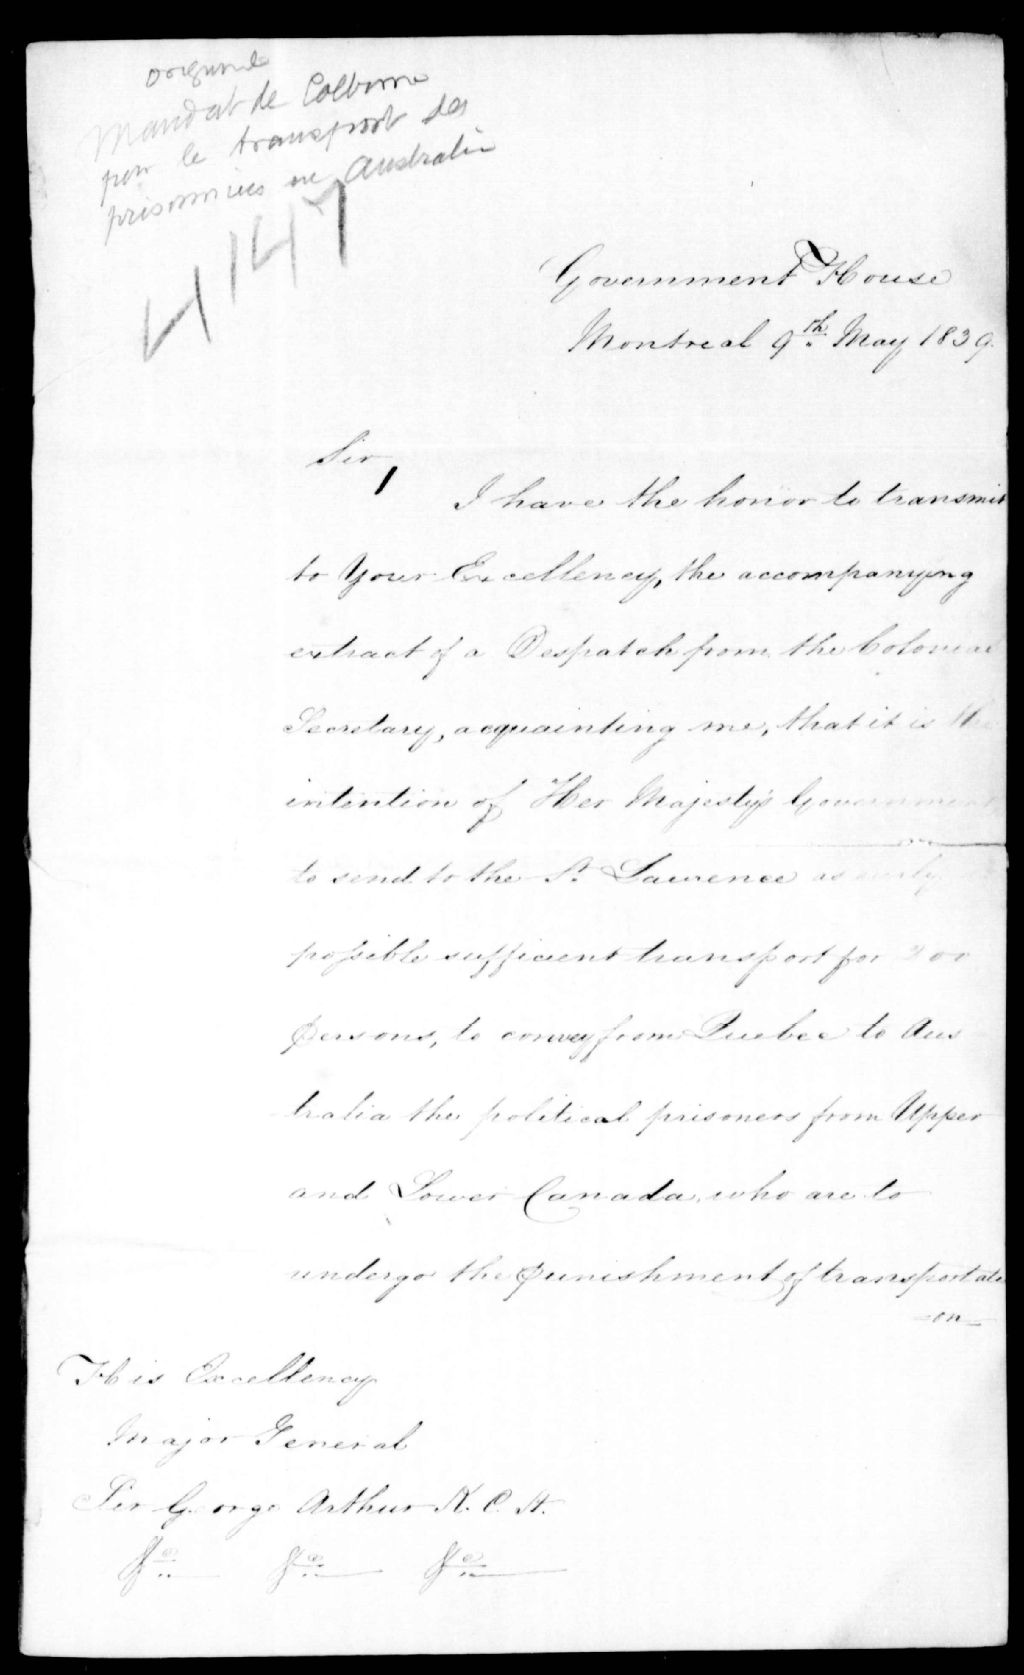 originale
Mandat de Colborne
pour le transport des
prisonniers en Australie
4147
Government House
Montreal 9th. May 1839.
Sir,
I have the honor to transmit
to Your Excellency, the accompanying
extract of a Despatch from the Colonial
Secretary, acquainting me, that it is the
intention of Her Majesty's Government
to send to the St. Lawrence as early
possible sufficient transport for 200
persons, to convey from Quebec to Aus
tralia the political prisoners from Upper
and Lower Canada, who are to
undergo the punishment of transportati
-on-
His Excellency
Major General
Sir George Arthur K. C. H.
&c. &c. &c.